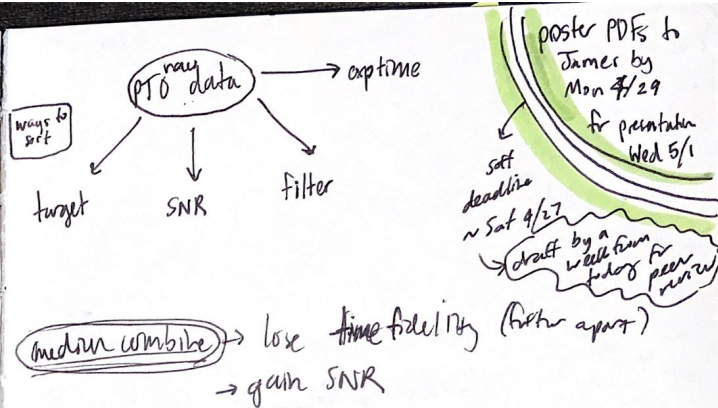 PTO raw data
→ exptime
ways to
sort
target
SNR
filter
poster PDFs to
James by
Mon 4/29
for presentation
Wed 5/1
soft
deadline
~ Sat 4/27
draft by a
week from
today for
peer
review
median combine → lose time fidelity (further apart)
→ gain SNR